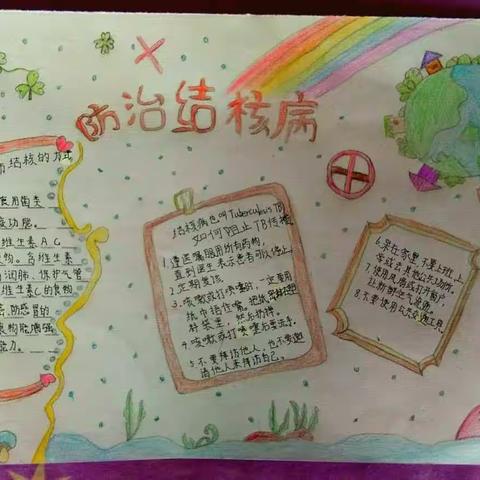 防治结核病
防结核的方
食用菌类
疫功能。
维生素 A、C
食物。含维生素
润肺，保护气管
维生素C的食物
防感冒的
结核病也叫Tuberculous TB
如何阻止TB传播
1.遵医嘱服用所有药物，
直到医生表示患者可以停止
2.定期复诊
3.咳嗽或打喷嚏时，一定要用
纸巾捂住嘴。把纸
袋里，然后扔掉。
4.咳嗽或打喷嚏后要洗手。
5.不要拜访他人，也不要邀
请他人来拜访自己。
6.呆在家里，不要上班上
学或去其他公共场所。
7.使用风扇或打开窗户
让新鲜空气流通
8.不要使用公共交通工具